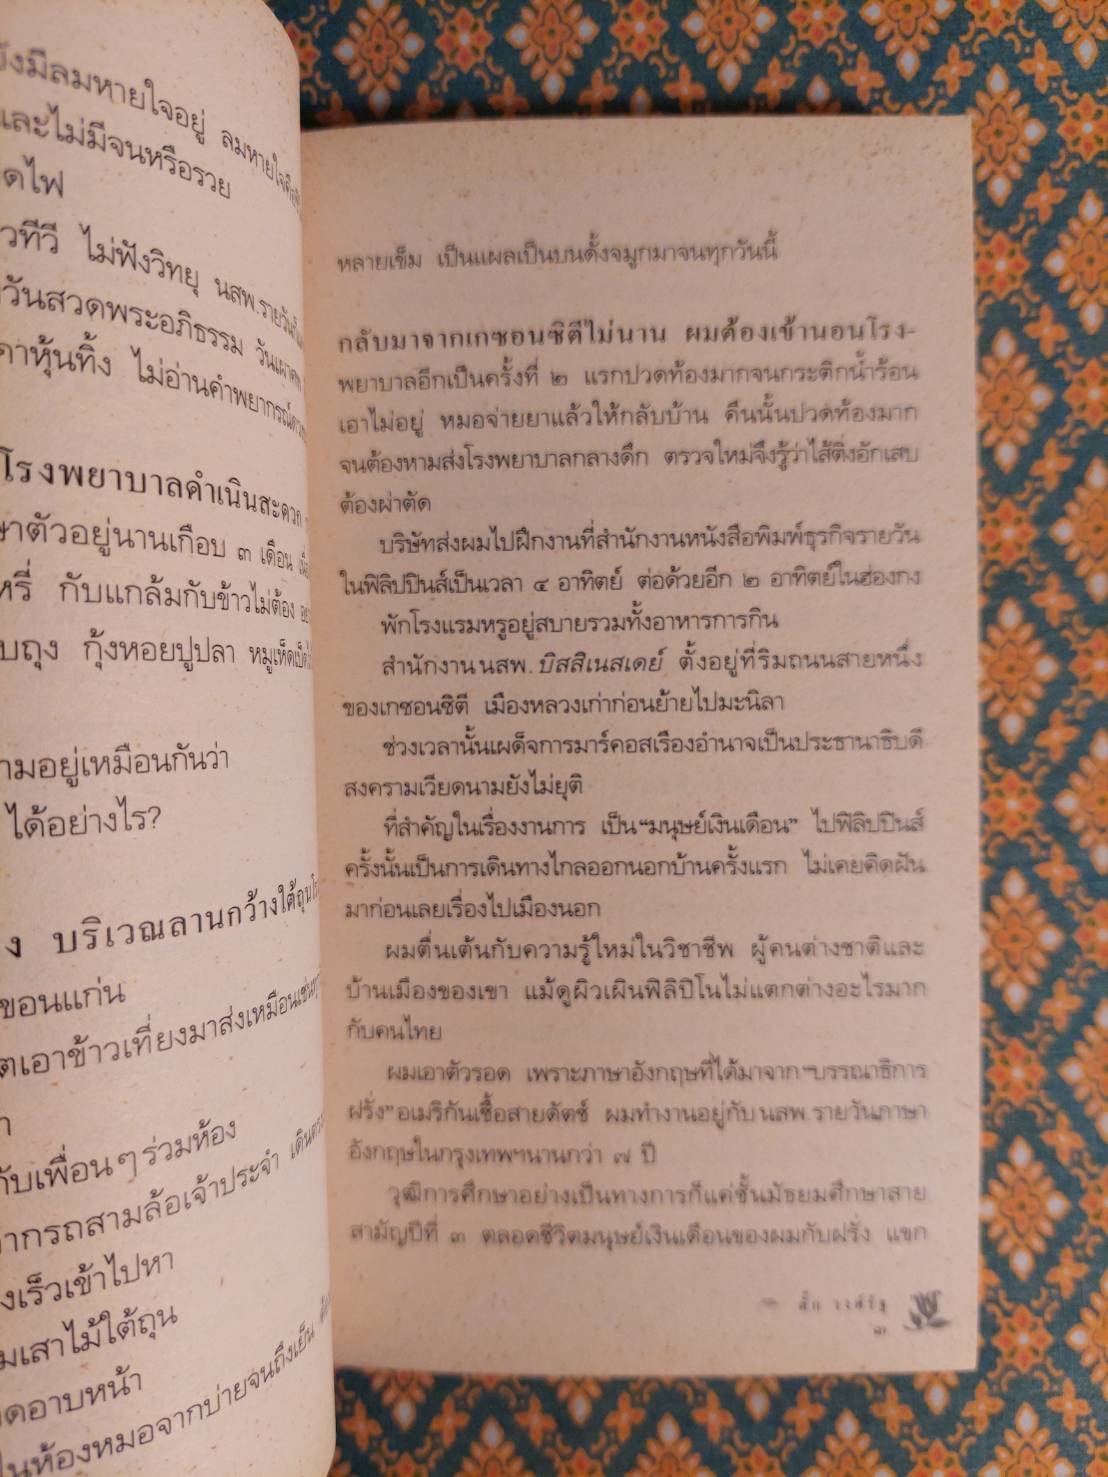 ยังมีลมหายใจอยู่ ลมหายใจ
และไม่มีจนหรือรวย
ดไฟ
วทีวี ไม่ฟังวิทยุ นสพ.รายวัน
วันสวดพระอภิธรรม วันเผา
คาหุ้นทิ้ง ไม่อ่านคำพยากรณ์
โรงพยาบาลดำเนินสะดวก
ษาตัวอยู่นานเกือบ ๓ เดือน
หรี่ กับแกล้มกับข้าวไม่ต้อง
บถุง กุ้งหอยปูปลา หมูเห็ดเป็ด
ามอยู่เหมือนกันว่า
ได้อย่างไร?
ง บริเวณลานกว้างใต้ถุน
ขอนแก่น
ตเอาข้าวเที่ยงมาส่งเหมือนเช่น
า
กับเพื่อนๆ ร่วมห้อง
ากรถสามล้อเจ้าประจำ
งเร็วเข้าไปหา
มเสาไม้ใต้ถุน
ดอาบหน้า
ในห้องหมอจากบ่ายจนถึงเย็น
หลายเข็ม เป็นแผลเป็นบนดั้งจมูกมาจนทุกวันนี้
กลับมาจากเกซอนซิตีไม่นาน ผมต้องเข้านอนโรง-
พยาบาลอีกเป็นครั้งที่ ๒ แรกปวดท้องมากจนกระติกน้ำร้อน
เอาไม่อยู่ หมอจ่ายยาแล้วให้กลับบ้าน คืนนั้นปวดท้องมาก
จนต้องหามส่งโรงพยาบาลกลางดึก ตรวจใหม่จึงรู้ว่าไส้ติ่งอักเสบ
ต้องผ่าตัด
บริษัทส่งผมไปฝึกงานที่สำนักงานหนังสือพิมพ์ธุรกิจรายวัน
ในฟิลิปปินส์เป็นเวลา ๔ อาทิตย์ ต่อด้วยอีก ๒ อาทิตย์ในฮ่องกง
พักโรงแรมหรูอยู่สบายรวมทั้งอาหารการกิน
สำนักงาน นสพ. บิสสิเนสเดย์ ตั้งอยู่ที่ริมถนนสายหนึ่ง
ของเกซอนซิตี เมืองหลวงเก่าก่อนย้ายไปมะนิลา
ช่วงเวลานั้นเผด็จการมาร์คอสเรืองอำนาจเป็นประธานาธิบดี
สงครามเวียดนามยังไม่ยุติ
ที่สำคัญในเรื่องงานการ เป็น“มนุษย์เงินเดือน” ไปฟิลิปปินส์
ครั้งนั้นเป็นการเดินทางไกลออกนอกบ้านครั้งแรก ไม่เคยคิดฝัน
มาก่อนเลยเรื่องไปเมืองนอก
ผมตื่นเต้นกับความรู้ใหม่ในวิชาชีพ ผู้คนต่างชาติและ
บ้านเมืองของเขา แม้ดูผิวเผินฟิลิปิโนไม่แตกต่างอะไรมาก
กับคนไทย
ผมเอาตัวรอด เพราะภาษาอังกฤษที่ได้มาจาก“บรรณาธิการ
ฝรั่ง”อเมริกันเชื้อสายดัตช์ ผมทำงานอยู่กับ นสพ.รายวันภาษา
อังกฤษในกรุงเทพฯนานกว่า ๗ ปี
วุฒิการศึกษาอย่างเป็นทางการก็แค่ชั้นมัธยมศึกษาสาย
สามัญปีที่ ๓ ตลอดชีวิตมนุษย์เงินเดือนของผมกับฝรั่ง แขก
วงศ์รัฐ